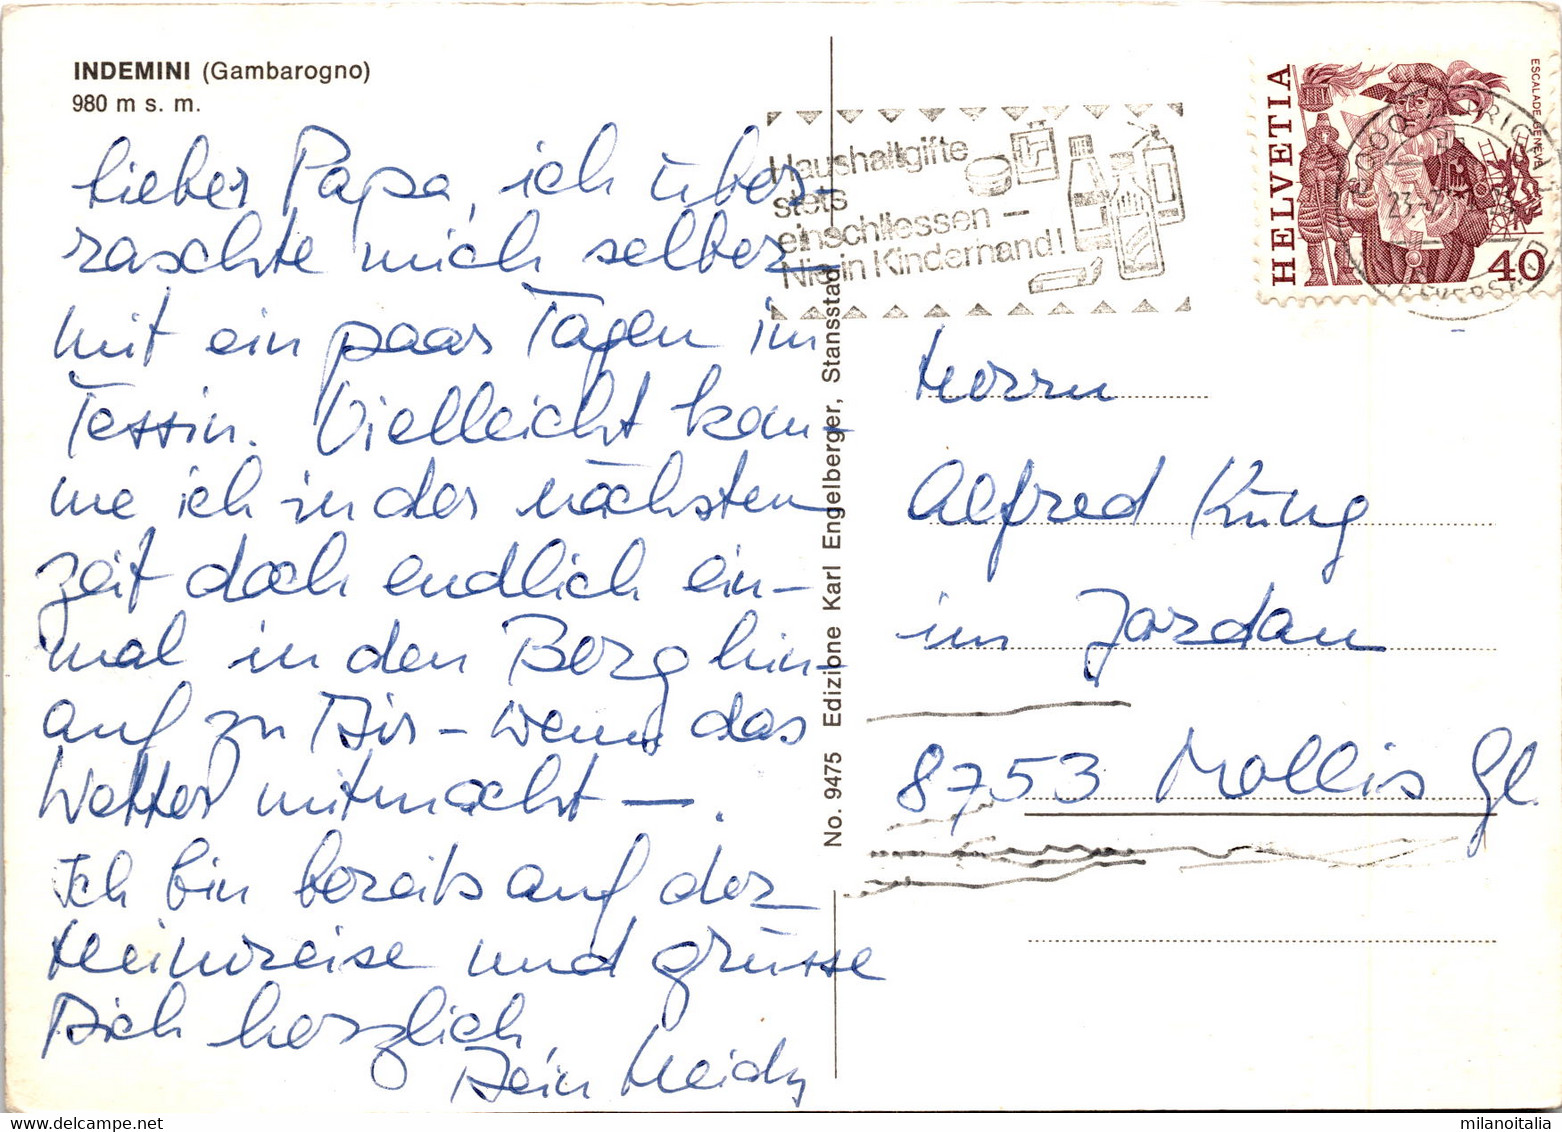 INDEMINI (Gambarogno)
980 m s. m.
Lieber Papa, ich über-
raschte mich selber
mit ein paar Tagen im
Tessin. Vielleicht kom-
me ich in der nächsten
Zeit doch endlich ein-
mal in den Berg hin-
auf zu Dir – wenn das
Wetter mitmacht – .
Ich bin bereits auf der
Heimreise und grüsse
Dich herzlich,
Dein Heidy
No. 9475 Edizione Karl Engelberger, Stansstad
Haushaltgifte
stets
einschliessen –
Nie in Kinderhand!
HELVETIA
ESCALADE GENÈVE
40
23.
Herrn
Alfred Küng
im Jordan
8753 Mollis Gl.
milanoitalia
www.delcampe.net